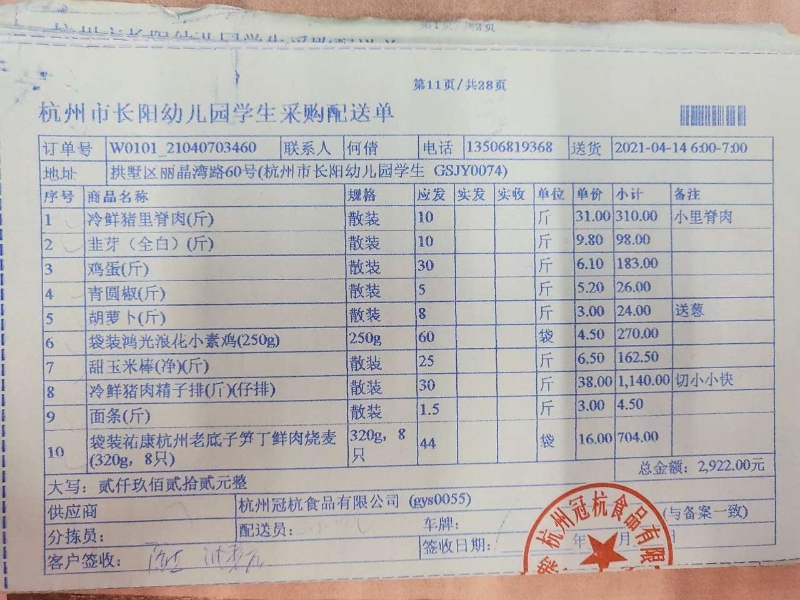 第11页/共28页
杭州市长阳幼儿园学生采购配送单
订单号 W0101_21040703460 联系人 何倩 电话 13506819368 送货 2021-04-14 6:00-7:00
地址 拱墅区丽晶湾路60号(杭州市长阳幼儿园学生 GSJY0074)
序号 商品名称 规格 应发 实发 实收 单位 单价 小计 备注
1 冷鲜猪里脊肉(斤) 散装 10 斤 31.00 310.00 小里脊肉
2 韭芽（全白）(斤) 散装 10 斤 9.80 98.00
3 鸡蛋(斤) 散装 30 斤 6.10 183.00
4 青圆椒(斤) 散装 5 斤 5.20 26.00
5 胡萝卜(斤) 散装 8 斤 3.00 24.00 送葱
6 袋装鸿光浪花小素鸡(250g) 250g 60 袋 4.50 270.00
7 甜玉米棒(净)(斤) 散装 25 斤 6.50 162.50
8 冷鲜猪肉精子排(斤)(仔排) 散装 30 斤 38.00 1,140.00 切小小快
9 面条(斤) 散装 1.5 斤 3.00 4.50
10 袋装祐康杭州老底子笋丁鲜肉烧麦 320g，8 44 袋 16.00 704.00
(320g，8只) 只
总金额：2,922.00元
大写：贰仟玖佰贰拾贰元整
供应商 杭州冠杭食品有限公司 (gys0055)
分拣员： 配送员： 车牌： (与备案一致)
客户签收： 签收日期： 年 月 日
杭州冠杭食品有限